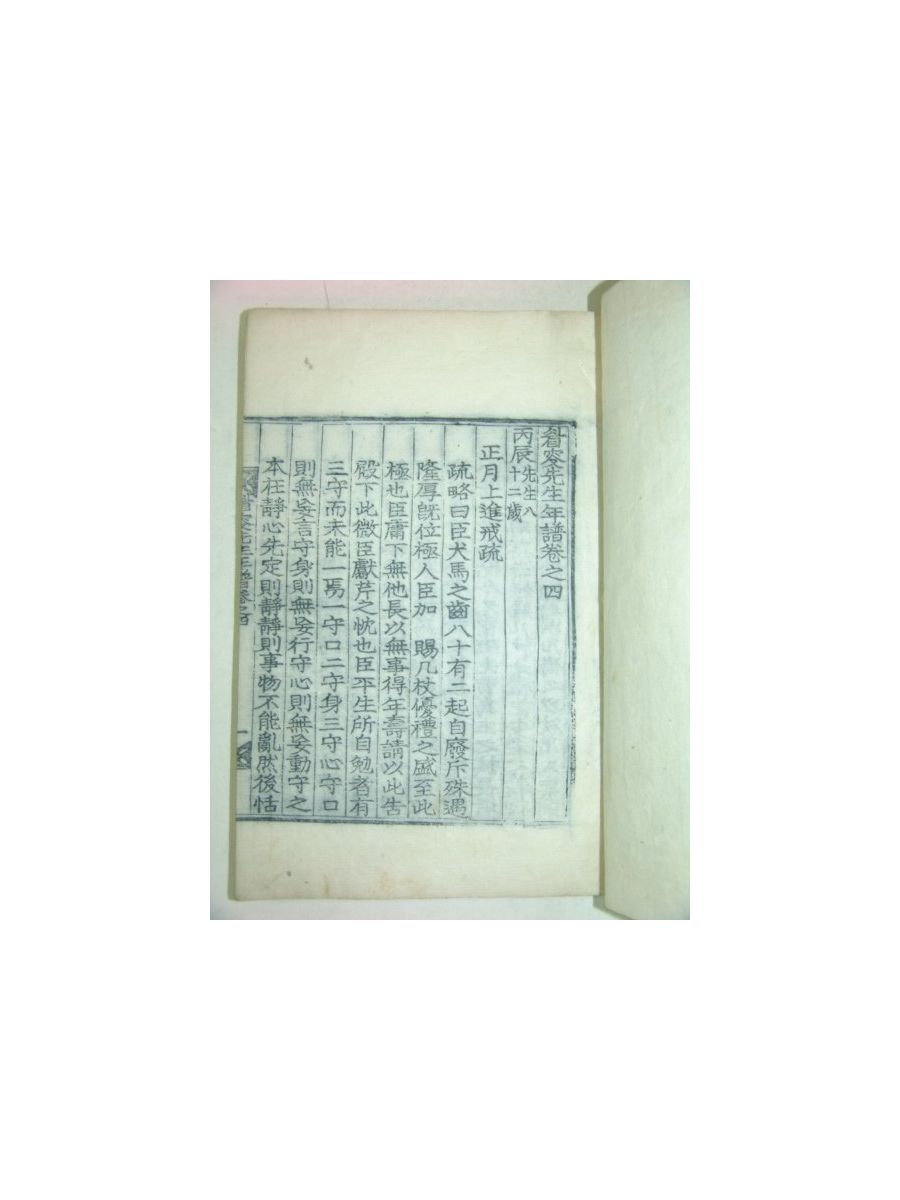 眉叟先生年譜卷之四
丙辰 先生八十二歲
正月上進戒疏
疏略曰臣犬馬之齒八十有二起自廢斥殊遇
隆厚旣位極人臣加 賜几杖優禮之盛至此
極也臣庸下無他長以無事得年壽請以此告
殿下此微臣獻芹之忱也臣平生所自勉者有
三守而未能一焉一守口二守身三守心守口
則無妄言守身則無妄行守心則無妄動守之
本在靜心先定則靜靜則事物不能亂然後恬